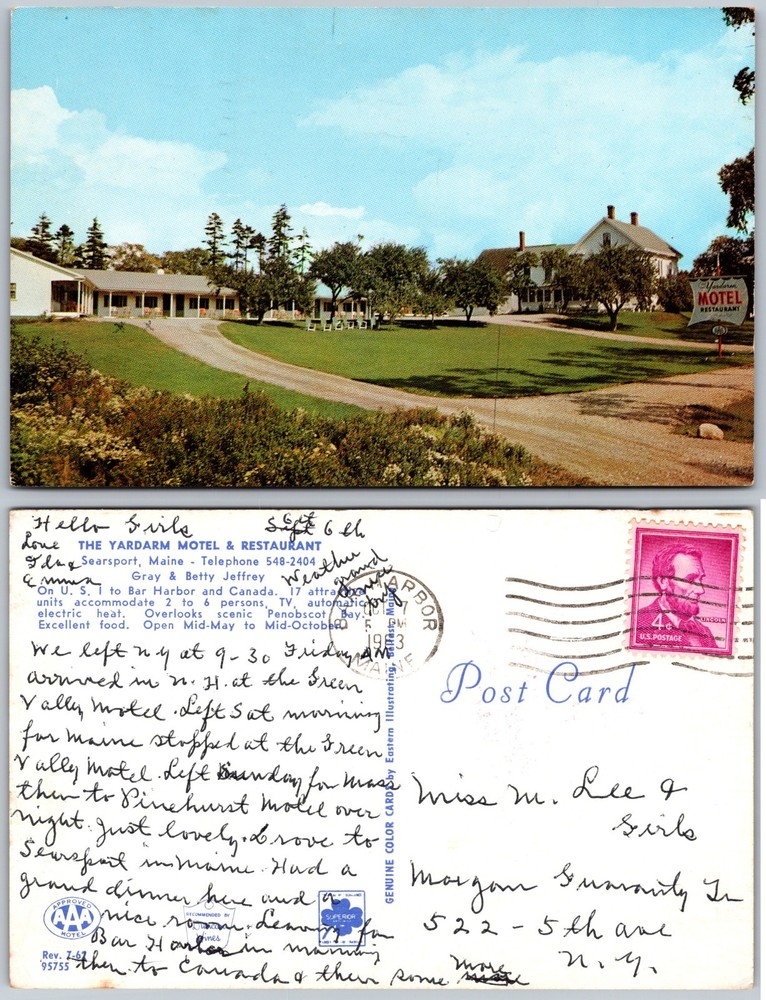 Yardarm
MOTEL
RESTAURANT
AAA
Hello Girls Sept Oct 6th
Love
Ida &
Emma
THE YARDARM MOTEL & RESTAURANT
Searsport, Maine - Telephone 548-2404
Gray & Betty Jeffrey
On U. S. 1 to Bar Harbor and Canada. 17 attractive
units accommodate 2 to 6 persons, TV, automatic
electric heat. Overlooks scenic Penobscot Bay.
Excellent food. Open Mid-May to Mid-October.
Weather
grand
since
Fri
We left N.Y at 9-30 Friday AM
arrived in N.H. at the Green
Valley Motel. Left Sat morning
for Maine stopped at the Green
Valley Motel. Left Sunday for Mass
then to Pinehurst Motel over
night. Just lovely. Drove to
Searsport in Maine. Had a
grand dinner here and a
nice room. Leaving for
Bar Harbor in morning
then to Canada & then some more
APPROVED
AAA
MOTEL
RECOMMENDED BY
Duncan Hines
SUPERIOR
Rev. 7-62
95755
GENUINE COLOR CARDS by Eastern Illustrating, Belfast, Maine
BAR HARBOR
PM
1963
MAINE
LINCOLN
4¢
U.S. POSTAGE
Post Card
Miss M. Lee &
Girls
Morgan Guaranty Tr
522 - 5th ave
N.Y.